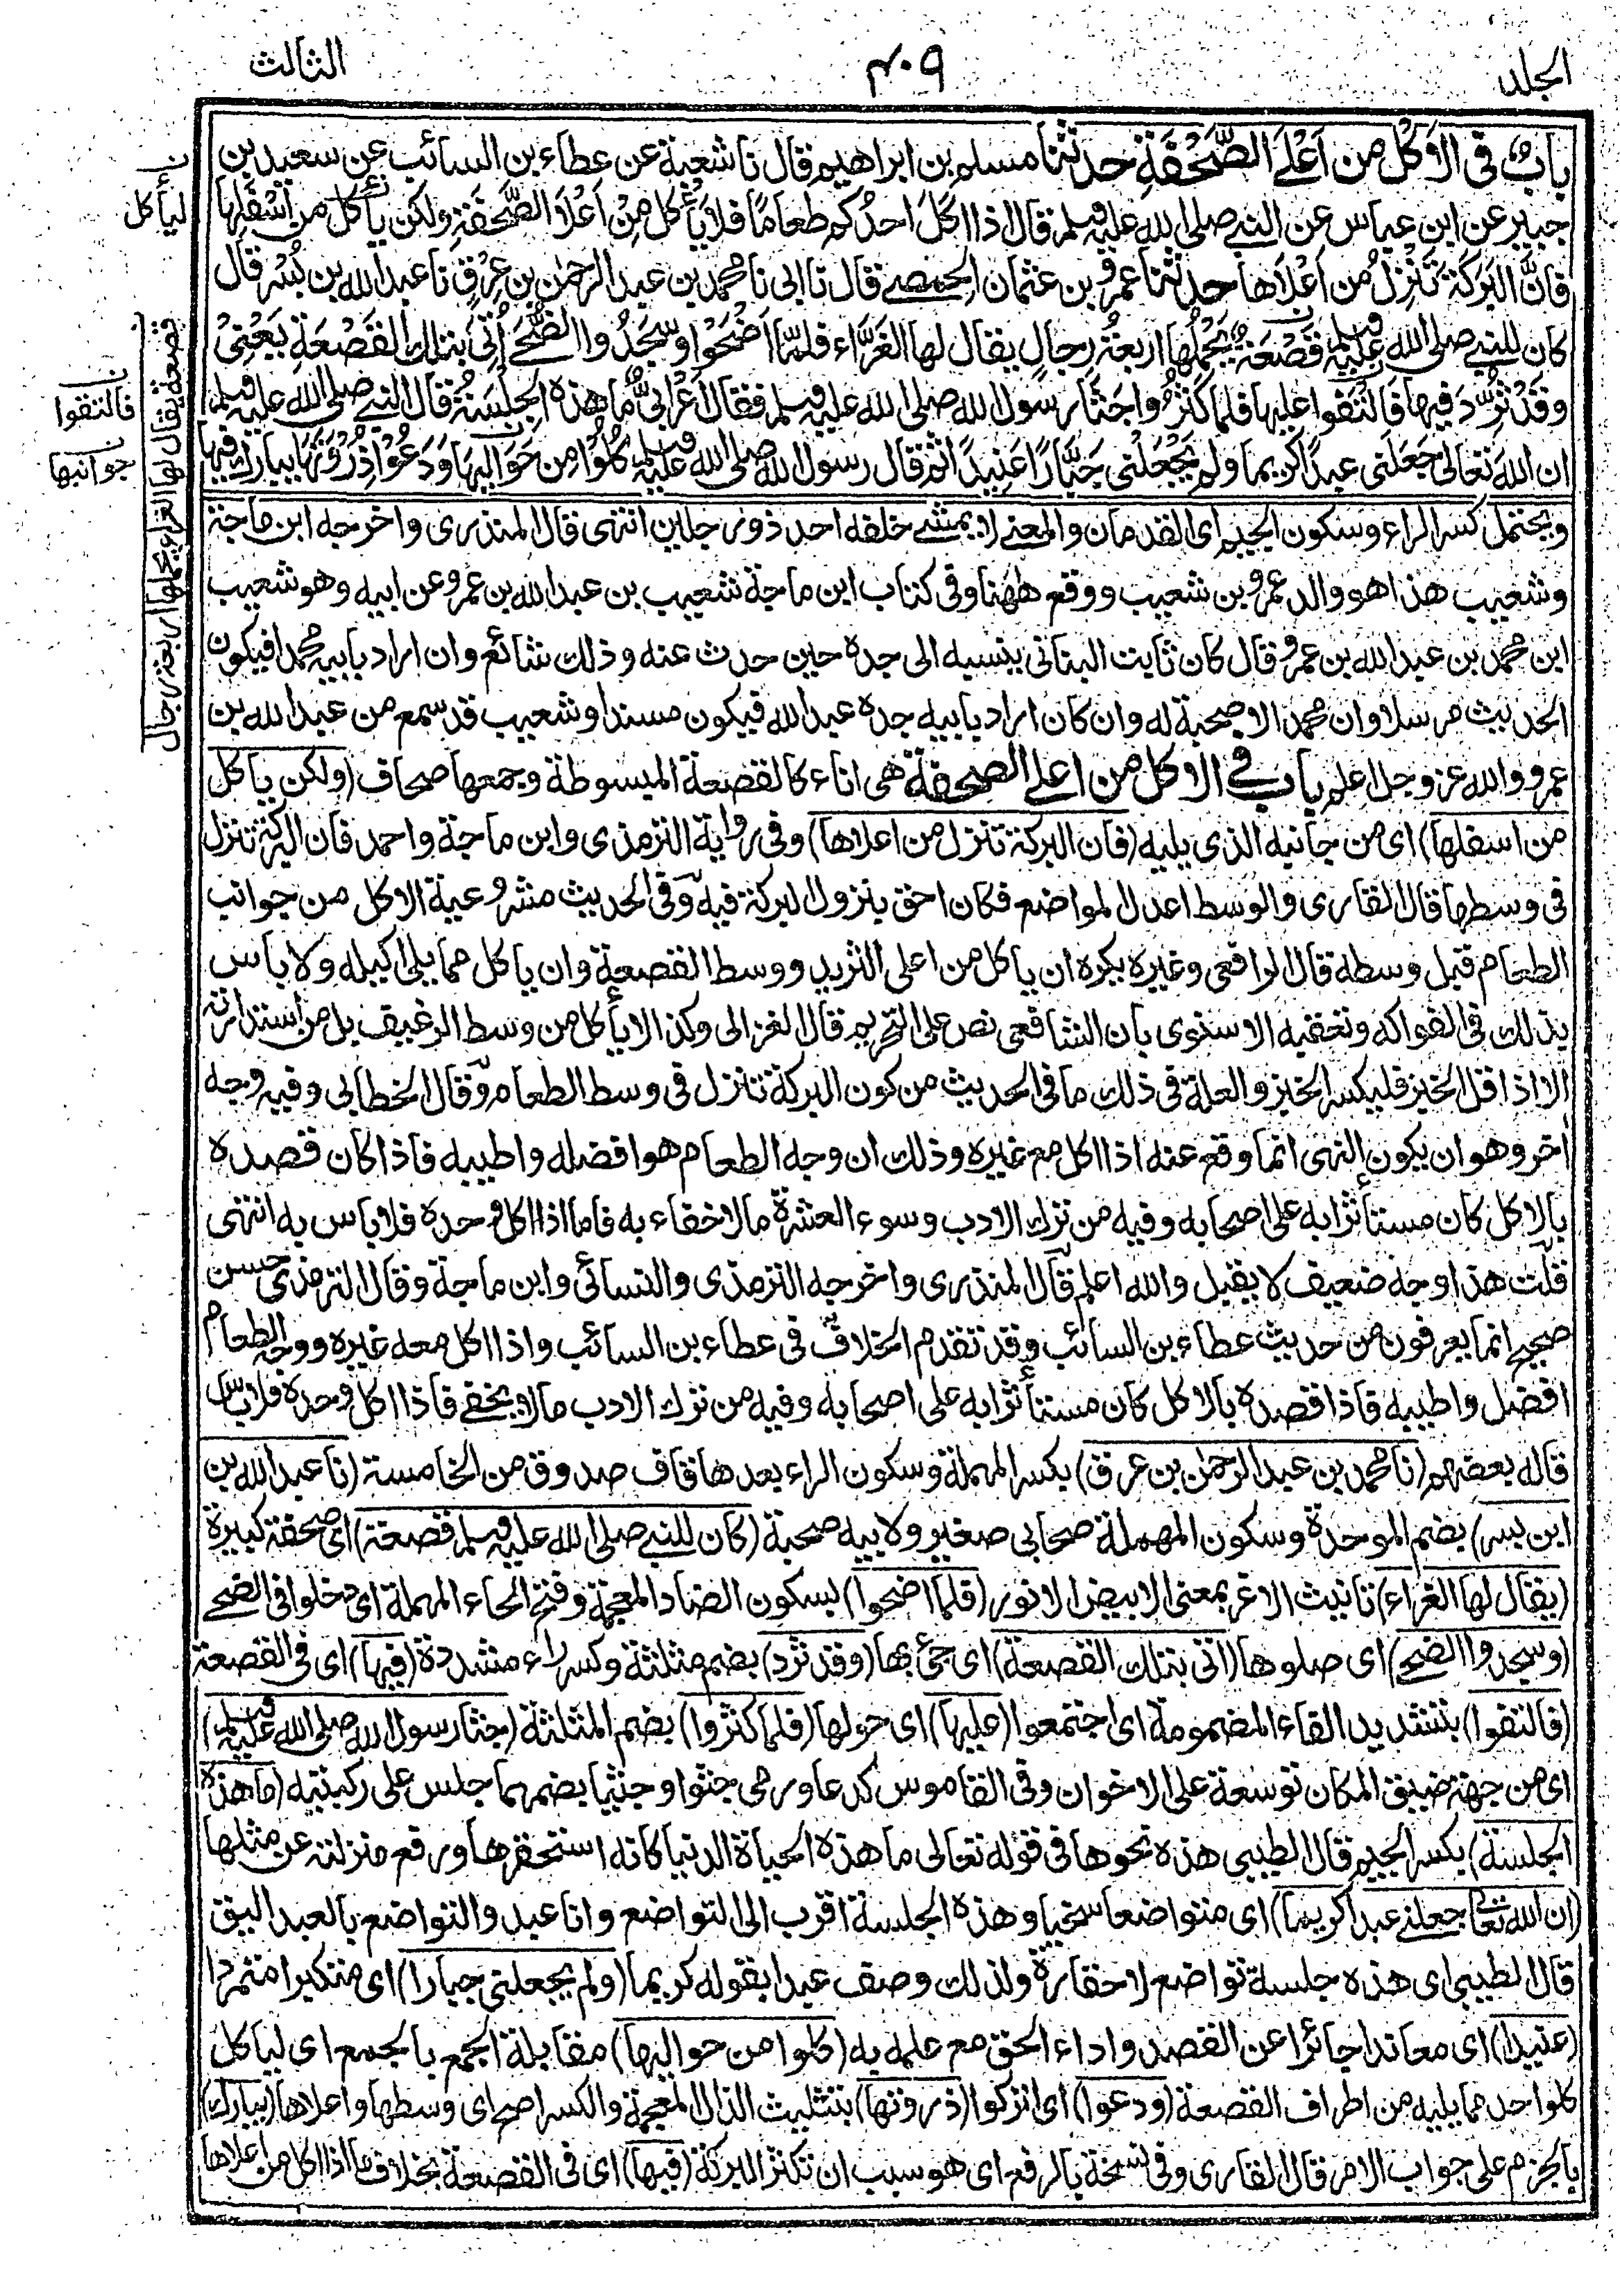 الجلد
٤٠٩
الثالث
بابٌ في الاَكْل من اَعْلَے الصَّحْفَةِ حدثنا مسلم بن ابراهيم قال نا شعبة عن عطاء بن السائب عن سعيد بن
جبير عن ابن عباس عن النبي صلى الله عليه وسلم قال اذا اَكَلَ احدُكم طعامًا فلا يَأْكُل مِنْ اَعْلَا الصَّحْفَةِ ولكن يَأْكل من اَسْفَلِها
فَانَّ البَرَكَةَ تَنْزِلُ من اَعْلَاها حدثنا عمرو بن عثمان الحمصي قال نا ابى نا محمد بن عبد الرحمن بن عِرْقٍ نا عبد الله بن بُسْر قال
كان للنبي صلى الله عليه وسلم قَصْعَةٌ يَحْمِلُها اربعةُ رجالٍ يقال لها الغَرَّاء فلمّا اَضْحَوْا وسَجَدُوا الضُّحَے اُتِىَ بتلك القَصْعَةِ يَعْنِىْ
وقَدْ ثُرِّدَ فيها فَالْتَفّوا عليها فلما كَثُرُوا جَثَا رسول الله صلى الله عليه وسلم فقال اَعْرابىٌّ ما هذه الجِلْسَةُ قال النبي صلى الله عليه وسلم
ان الله تعالى جَعَلَنى عبدًا كريما ولم يَجْعَلْنى جَبَّارًا عَنِيدًا ثم قال رسول الله صلى الله عليه وسلم كُلُوْا مِن حَوَالَيْهَا وَدَعُوْا ذِرْوَتَهَا يبارك فيها
ويحتمل كسر الراء وسكون الجيم اى القدمان والمعنى لا يمشے خلفه احد ذو رجلين انتهى قال المنذرى واخرجه ابن ماجة
وشعيب هذا هو والد عمرو بن شعيب ووقع ههنا وفى كتاب ابن ماجة شعيب بن عبد الله بن عمرو عن ابيه وهو شعيب
ابن محمد بن عبد الله بن عمرو قال كان ثابت البنانى ينسبه الى جده حين حدث عنه وذلك شائع وان اراد بابيه محمدا فيكون
الحديث مرسلا وان محمدا لا صحبة له وان كان اراد بابيه جده عبد الله فيكون مسندا وشعيب قد سمع من عبد الله بن
عمرو والله عز وجل اعلم باب فے الاكل من اعلے الصحفة هى اناء كالقصعة المبسوطة وجمعها صحاف (ولكن ياكل
من اسفلها) اى من جانبه الذى يليه (فان البركة تنزل من اعلاها) وفى رواية الترمذى وابن ماجة واحمد فان البركة تنزل
فى وسطها قال القارى والوسط اعدل المواضع فكان احق بنزول البركة فيه وفى الحديث مشروعية الاكل من جوانب
الطعام قبل وسطه قال الرافعى وغيره يكره ان ياكل من اعلى الثريد ووسط القصعة وان ياكل مما يلى اكيله ولا باس
بذلك فى الفواكه وتعقبه الاسنوى بان الشافعى نص على التحريم قال الغزالى وكذا لا يأكل من وسط الرغيف بل من استدارته
الا اذا قل الخبز فليكسر الخبز والعلة فى ذلك ما فى الحديث من كون البركة تنزل فى وسط الطعام وقال الخطابى وفيه وجه
آخر وهو ان يكون النهى انما وقع عنه اذا اكل مع غيره وذلك ان وجه الطعام هو افضله واطيبه فاذا كان قصده
بالاكل كان مستأثرا به على اصحابه وفيه من ترك الادب وسوء العشرة ما لا خفاء به فاما اذا اكل وحده فلا باس به انتهى
قلت هذا وجه ضعيف لا يقبل والله اعلم قال المنذرى واخرجه الترمذى والنسائى وابن ماجة وقال الترمذى حسن
صحيح انما يعرفون من حديث عطاء بن السائب وقد تقدم اختلاف فى عطاء بن السائب واذا اكل معه غيره ووجه الطعام
افضل واطيبه فاذا قصده بالاكل كان مستأثرا به على اصحابه وفيه من ترك الادب ما لا يخفے فاذا اكل وحده فلا باس
قاله بعضهم (نا محمد بن عبد الرحمن بن عرق) بكسر المهملة وسكون الراء بعدها قاف صدوق من الخامسة (نا عبد الله بن
ابن بسر) بضم الموحدة وسكون المهملة صحابى صغير ولابيه صحبة (كان للنبي صلى الله عليه وسلم قصعة) اى صحفة كبيرة
(يقال لها الغراء) تانيث الاغر بمعنى الابيض الانور (فلما اضحوا) بسكون الضاد المعجمة وفتح الحاء المهملة اى دخلوا فى الضحے
(وسجدوا الضحے) اى صلوها (اتى بتلك القصعة) اى جئ بها (وقد ثرد) بضم مثلثة وكسر راء مشددة (فيها) اى فى القصعة
(فالتفوا) بتشديد الفاء المضمومة اى اجتمعوا (عليها) اى حولها (فلما كثروا) بضم المثلثة (جثا رسول الله صلى الله عليه وسلم)
اى من جهة ضيق المكان توسعة على الاخوان وفى القاموس كدعا ورمى جثوا وجثيا بضمهما جلس على ركبتيه (ما هذه
الجلسة) بكسر الجيم قال الطيبى هذه نحوها فى قوله تعالى ما هذه الحياة الدنيا كانه استحقرها ورفع منزلته عن مثلها
(ان الله تعالى جعلنے عبدا كريما) اى متواضعا سخيا وهذه الجلسة اقرب الى التواضع وانا عبد والتواضع بالعبد اليق
قال الطيبى اى هذه جلسة تواضع لا حقارة ولذلك وصف عبدا بقوله كريما (ولم يجعلنى جبارا) اى متكبرا متمردا
(عنيدا) اى معاندا جائرا عن القصد واداء الحق مع علمه به (كلوا من حواليها) مقابلة الجمع بالجمع اى لياكل
كل واحد مما يليه من اطراف القصعة (ودعوا) اى اتركوا (ذروتها) بتثليث الذال المعجمة والكسر اصح اى وسطها واعلاها (يبارك)
بالجزم على جواب الامر قال القارى وفى نسخة بالرفع اى هو سبب ان تكثر البركة (فيها) اى فى القصعة بخلاف ما اذا اكل من اعلاها
ن
ليأكل
قصعة يقال لها الغراء يحملها اربعة رجال
ن
فالتقوا
ن
جوانبها